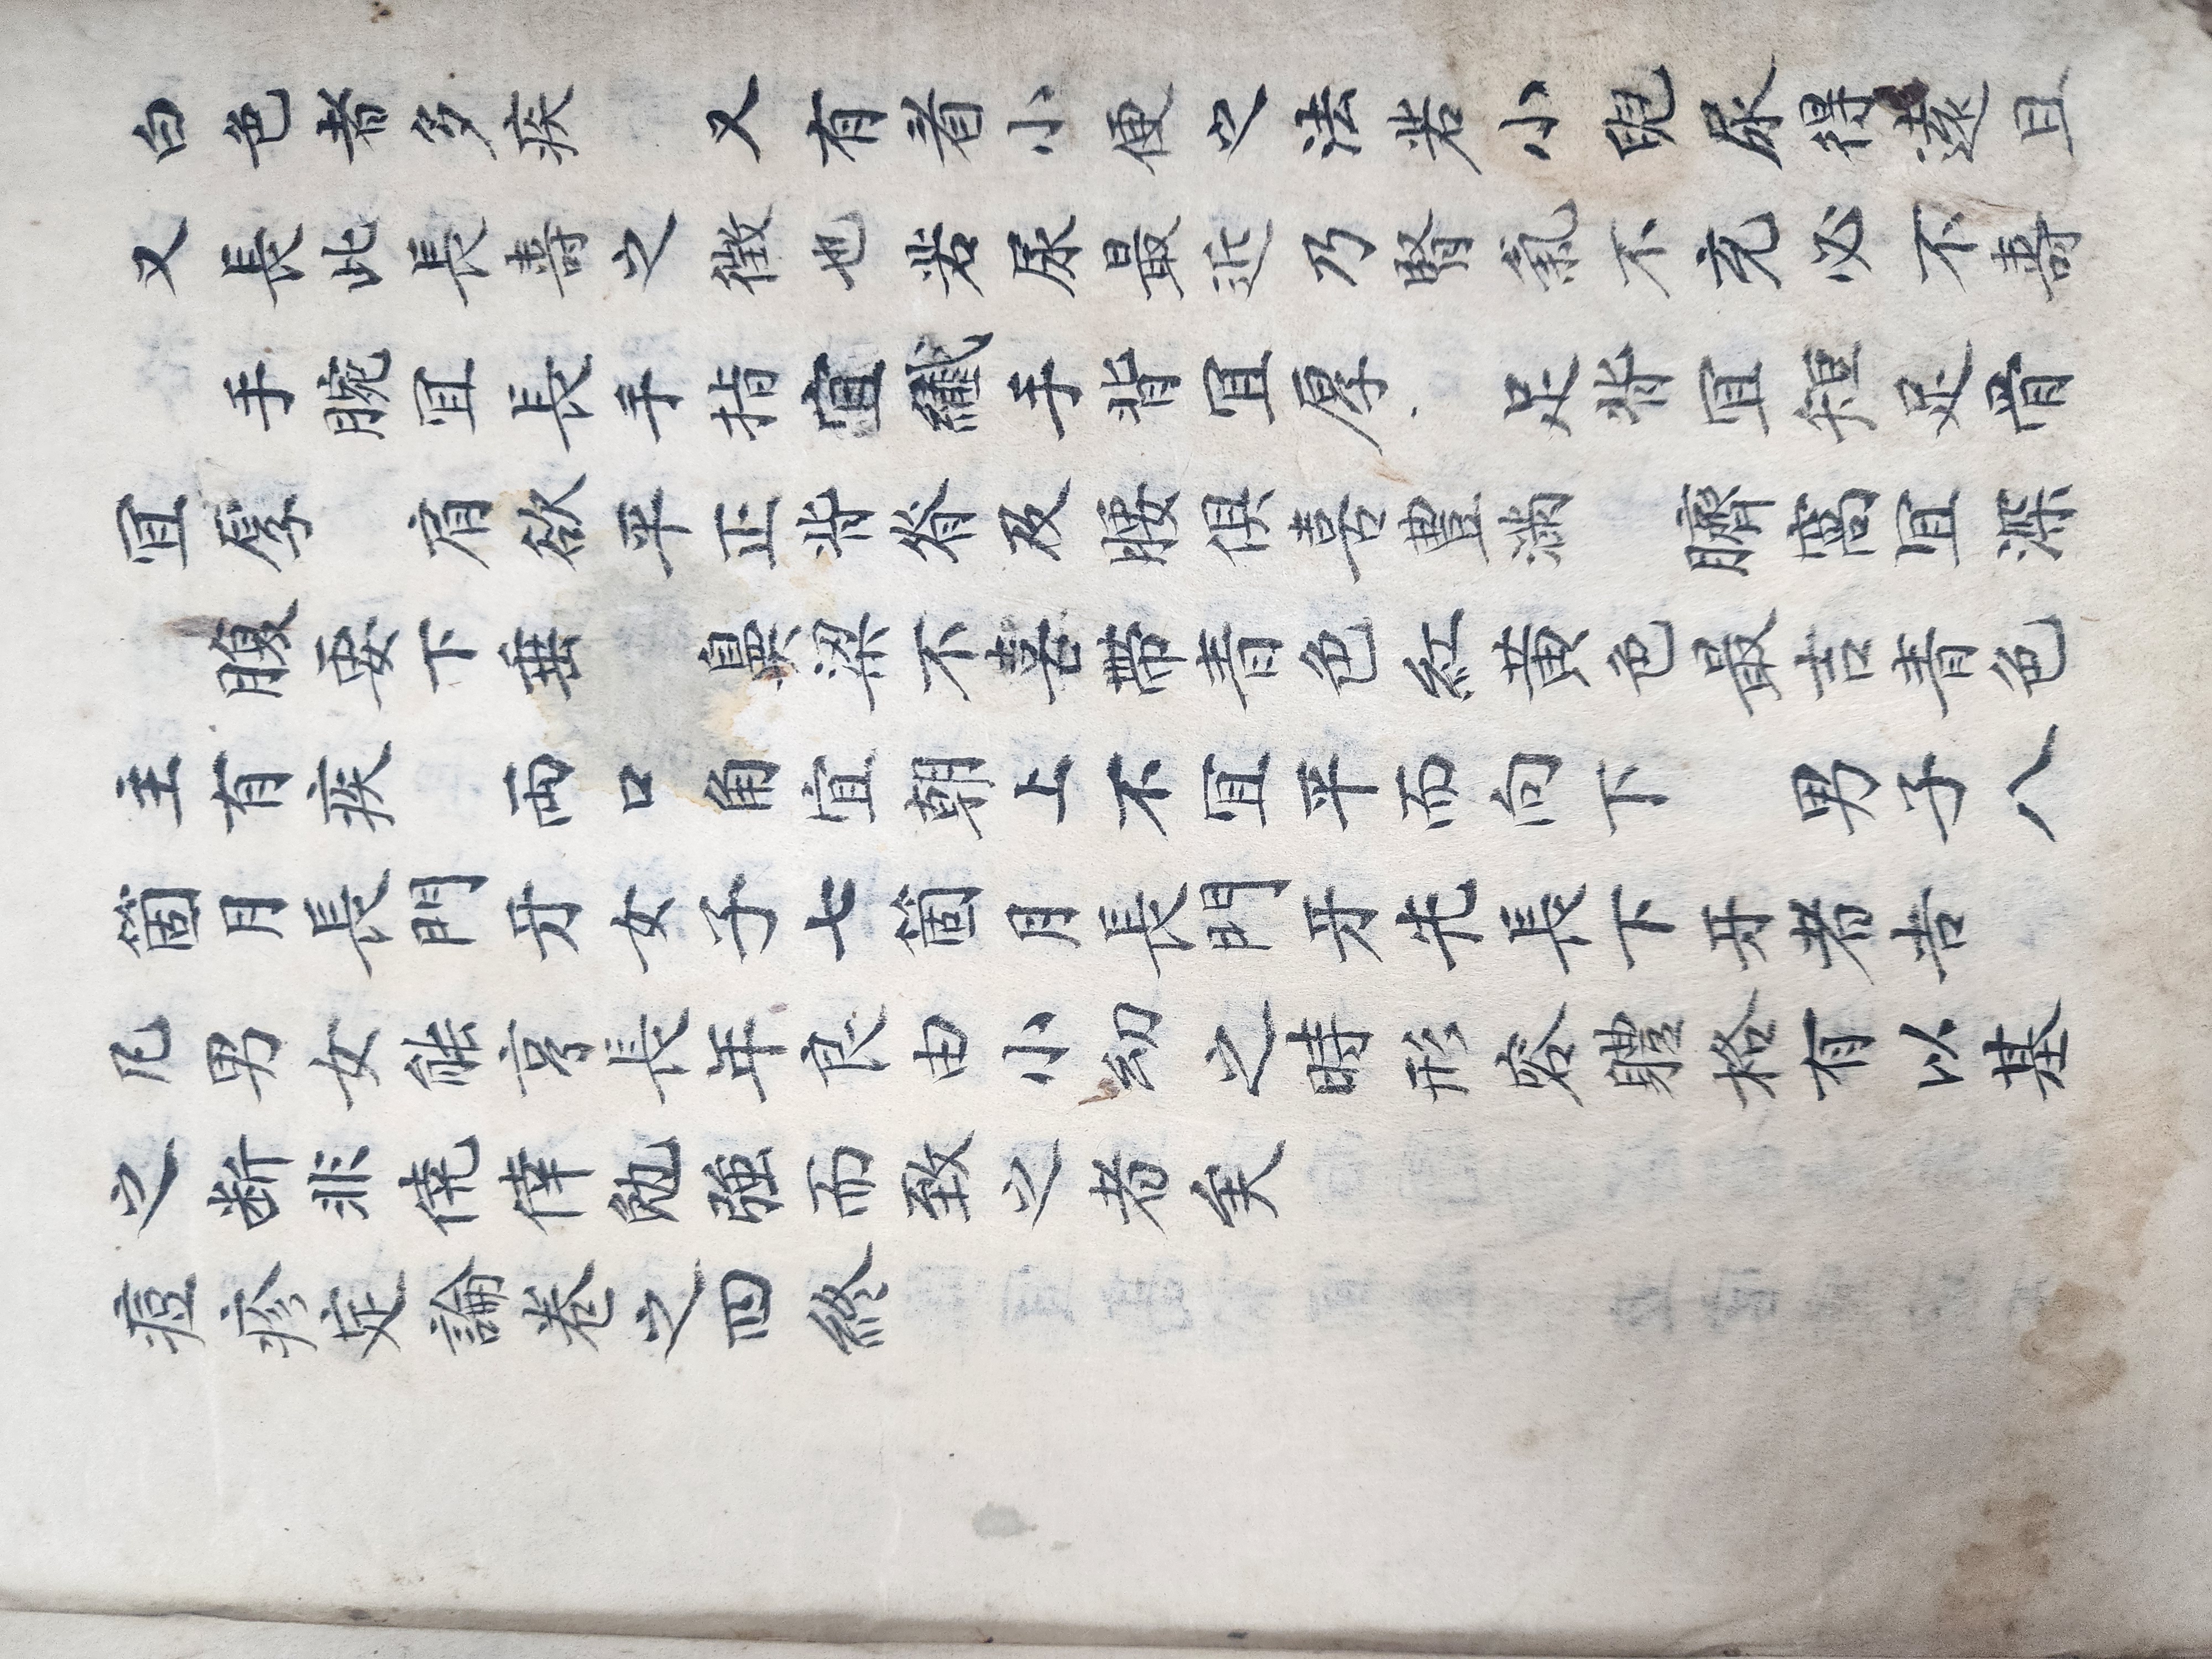 白色者多疾　又有看小便之法若小兒尿得遠且
又長此長壽之徵也若尿最近乃腎氣不充必不壽
手腕宜長手指宜纖手背宜厚　足背宜短足背
宜厚　肩欲平正背脊及腰俱喜豊滿　臍窩宜深
腹要下垂　鼻梁不喜帶青色紅黃色最吉青色
主有疾　両口角宜朝上不宜平而向下　男子八
箇月長門牙女子七箇月長門牙先長下牙者吉
凡男女能享長年良由小幼之時形容體格有以基
之斷非倖倖勉强而致之者矣
痘疹定論卷之四終